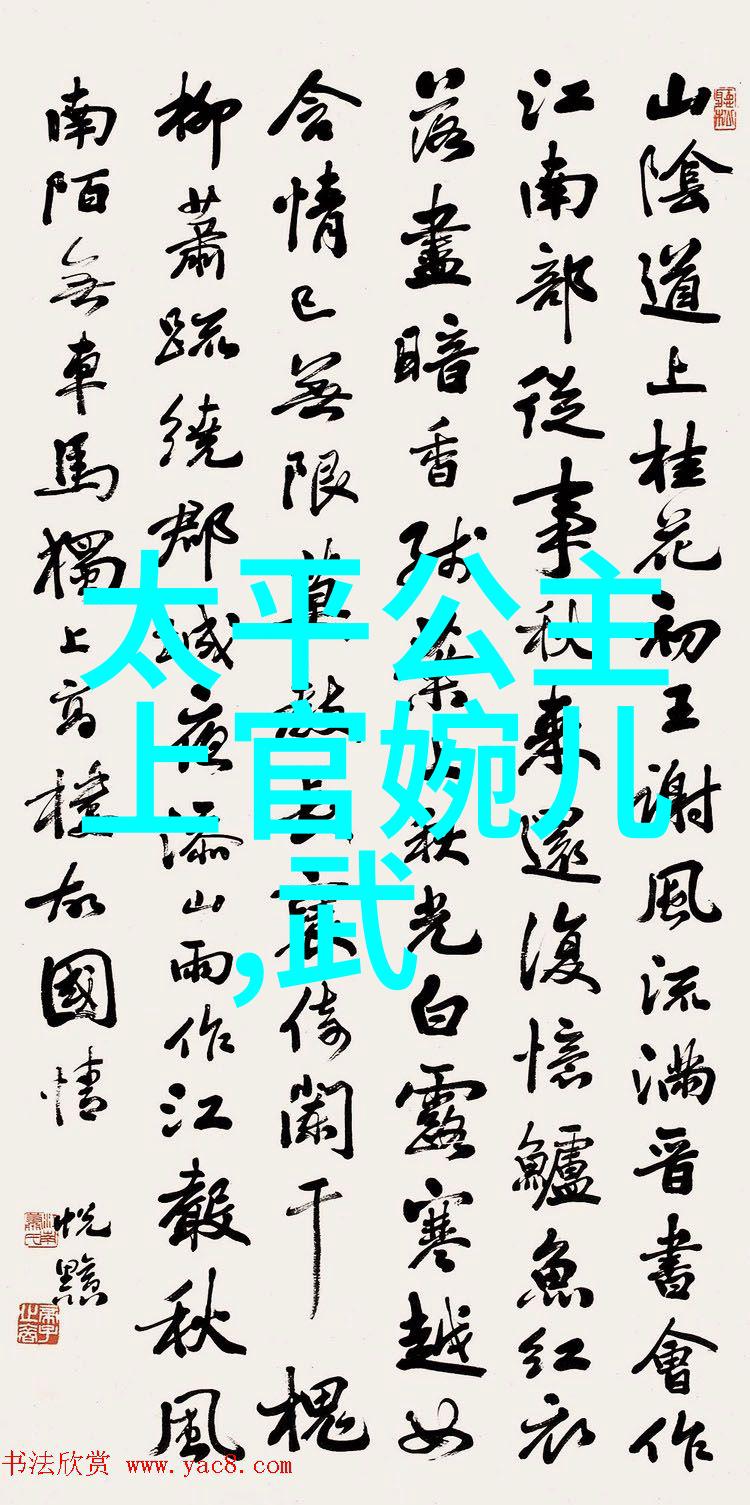 山陰道上桂花初王謝風流滿晉書會作
江南部從事秋來還復憶鱸魚紅衣
落盡暗香殘葉上秋光白露寒越女
含情已無限莫教長袖倚闌干 槐
柳蕭疏繞郡城夜添山雨作江聲秋風
南陌無車馬獨上高樓故國情
太平公主
上官婉儿
,武
书法欣赏 www.yac8.com